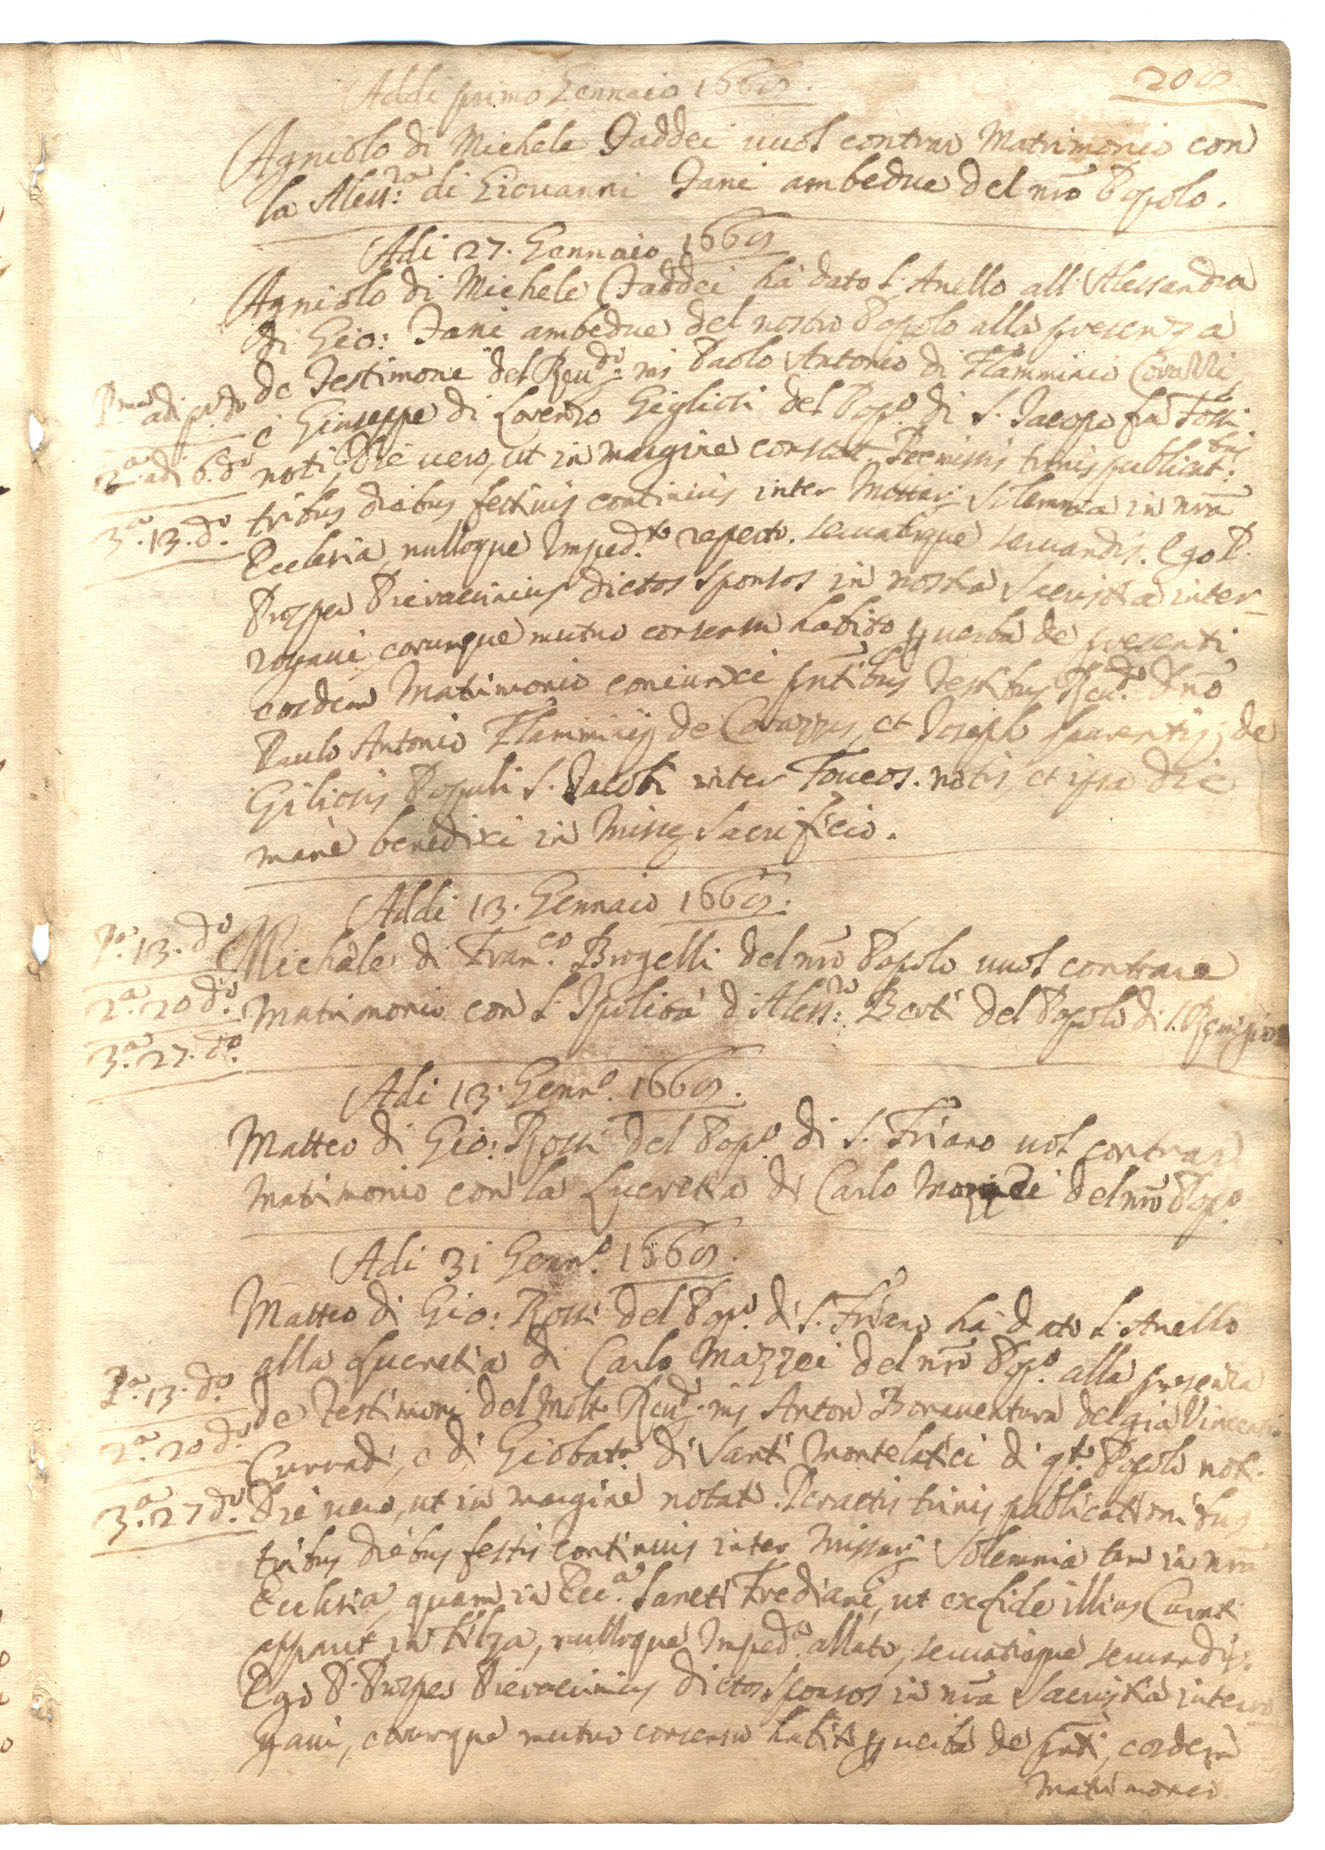 Addi primo Gennaio 1669.
Agniolo di Michele Taddei vuol contrar Matrimonio con
la Aless:ra di Giouanni Fani ambedue del nr̃o Popolo.
Adi 27. Gennaio 1669
Agniolo di Michele Taddei ha dato l'Anello all'Alessandra
di Gio: Fani ambedue del nostro Popolo alla presenza
de Testimoni del Reu.do mi Paolo Antonio di Flamminio Covazzi,
P.ma adi p.o do
e Giuseppe di Lorenzo Giglioli del Pop.o di S. Jacopo fra Fossi
2.a adi 6. do
noti, Die uero, ut in margine constat. Premissis trinis publicat:bus
tribus diebus festiuis continuis inter Missar. Solemnia in nr̃a
3.a 13. do
Ecclesia, nulloque Imped.to reperto. seruatisque seruandis. Ego P.
Prosper Pieraccinius dictos sponsos in nostra Sacristia inter-
rogaui, eorumque mutuo consensu habito p uerba de presenti
eosdem Matrimonio coniunxi pñtibus Testibus Reu.do Dño
Paulo Antonio Flamminij de Covazzis, et Joseph Laurentij de
Giliolis Populi S. Jacobi inter Foueos. notis et ipsa die
mane benedixi in Missę Sacrificio.
Addi 13. Gennaio 1669.
P.a 13. do
Michele di Fran.co Brogelli del nr̃o Popolo vuol contrare
2.a 20 do
Matrimonio con l'Ipolita d'Aless:ro Berti del Popolo di S. Remigio
3.a 27. do
Adi 13. Genn.o 1669.
Matteo di Gio: Rossi del Pop.o di S. Friano uol contrar
Matrimonio con la Lucretia di Carlo Mazzei del nr̃o Pop.o
Adi 31 Genn.o 1669.
Matteo di Gio: Rossi del Pop.o di S. Friano ha dato l'Anello
alla Lucretia di Carlo Mazzei del nr̃o Pop.o alla presenza
P.a 13. do
de Testimoni del Molto Reu.do mi Anton Bonauentura del gia Vincenti
2.a 20 do
Curradi, e di Giobat.a di Santi Montelatici di q.to Popolo noti.
3.a 27 do
Die uero, ut in margine notat. Peractis trinis publicationibus
tribus diebus festis continuis inter Missar. Solemnia tam in nr̃a
Ecclesia, quam in Ecc.a Sancti Frediani, ut ex fide illius Curati
apparet in filza, nulloque Imped.o allato, seruatisque seruandis.
Ego P. Prosper Pieraccinius dictos sponsos in nr̃a Sacristia interro
gaui, eorumque mutuo consensu habito p uerba de pñti, eosdem
Matrimonio